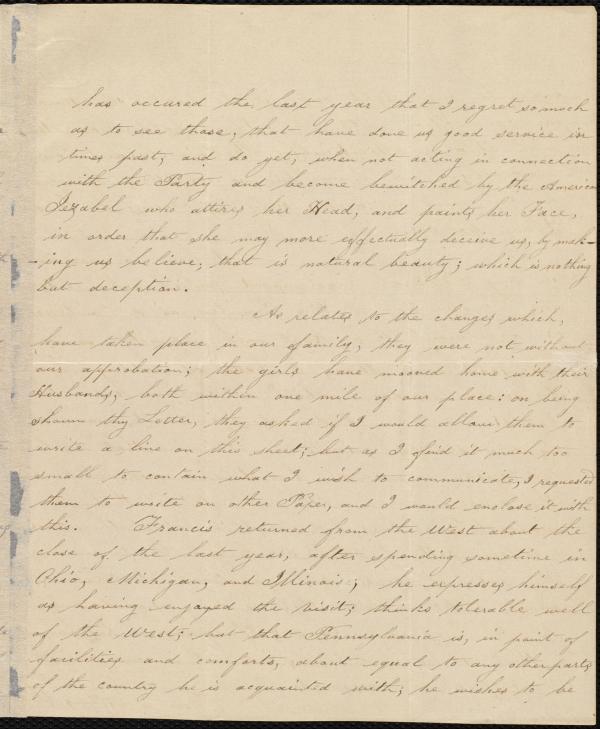 has occured the last year that I regret so much
as to see those, that have done us good service in
times past, and do yet, when not acting in connection
with the Party and become bewitched by the American
Jezabel who attires her Head, and paints her Face,
in order that she may more effectually deceive us, by mak-
-ing us believe, that is natural beauty; which is nothing
but deception.
As relates to the changes which,
have taken place in our family, they were not without
our approbation; the girls have mooved home with their
Husbands, both within one mile of our place: on being
shown thy Letter, they asked if I would allow them to
write a line on this sheet; but as I find it much too
small to contain what I wish to communicate, I requested
them to write on other Paper, and I would enclose it with
this. Francis returned from the West about the
close of the last year, after spending sometime in
Ohio, Michigan, and Illinois; he expresses himself
as having enjoyed the visit; thinks tolerable well
of the West; but that Pennsylvania is, in point of
facilities and comforts, about equal to any other parts
of the country he is acquainted with; he wishes to be